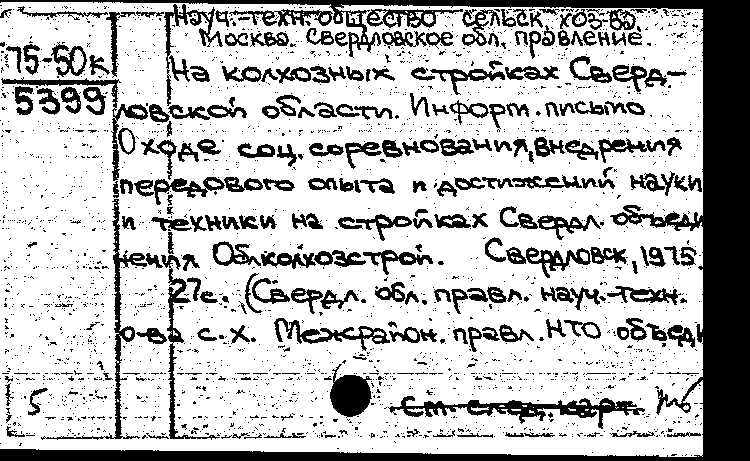 Науч.-техн. общество сельск. хоз-ва.
Москва. Свердловское обл. правление.
75-50к
5399
На колхозных стройках Сверд-
ловской области. Информ. письмо
О ходе соц. соревнования, внедрения
передового опыта и достижений науки
и техники на стройках Свердл. объеди
нения Облколхозстрой. Свердловск, 1975.
27с. (Свердл. обл. правл. науч.-техн.
о-ва с.-х. Межрайон. правл. НТО объеди
5
См. след. карт.